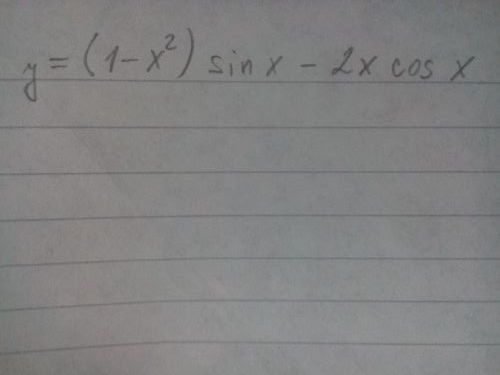 y = (1-x²) sin x - 2x cos x